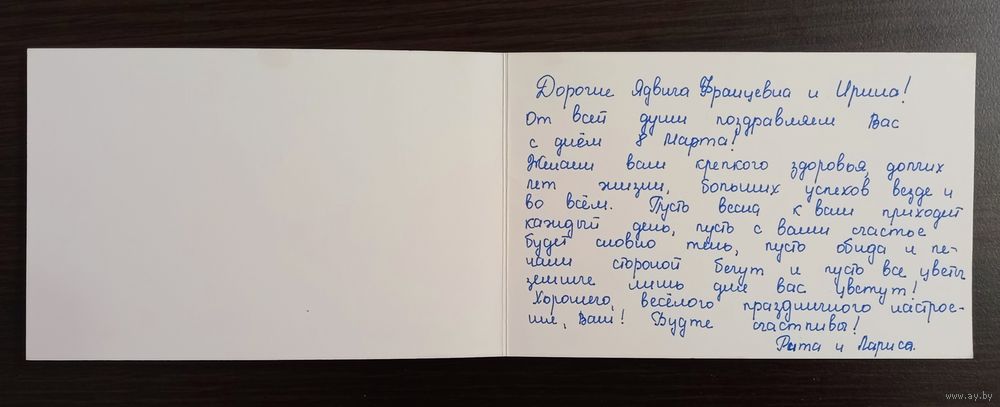 Дорогие Ядвига Францевна и Ирина!
От всей души поздравляем Вас
с днём 8 Марта!
Желаем вам крепкого здоровья, долгих
лет жизни, больших успехов везде и
во всём. Пусть весна к вам приходит
каждый день, пусть с вами счастье
будет словно тень, пусть обида и пе-
чали стороной бегут и пусть все цветы
земные лишь для вас цветут!
Хорошего, весёлого праздничного настрое-
ния, Вам! Будте счастливы!
Рита и Лариса.
www.ay.by